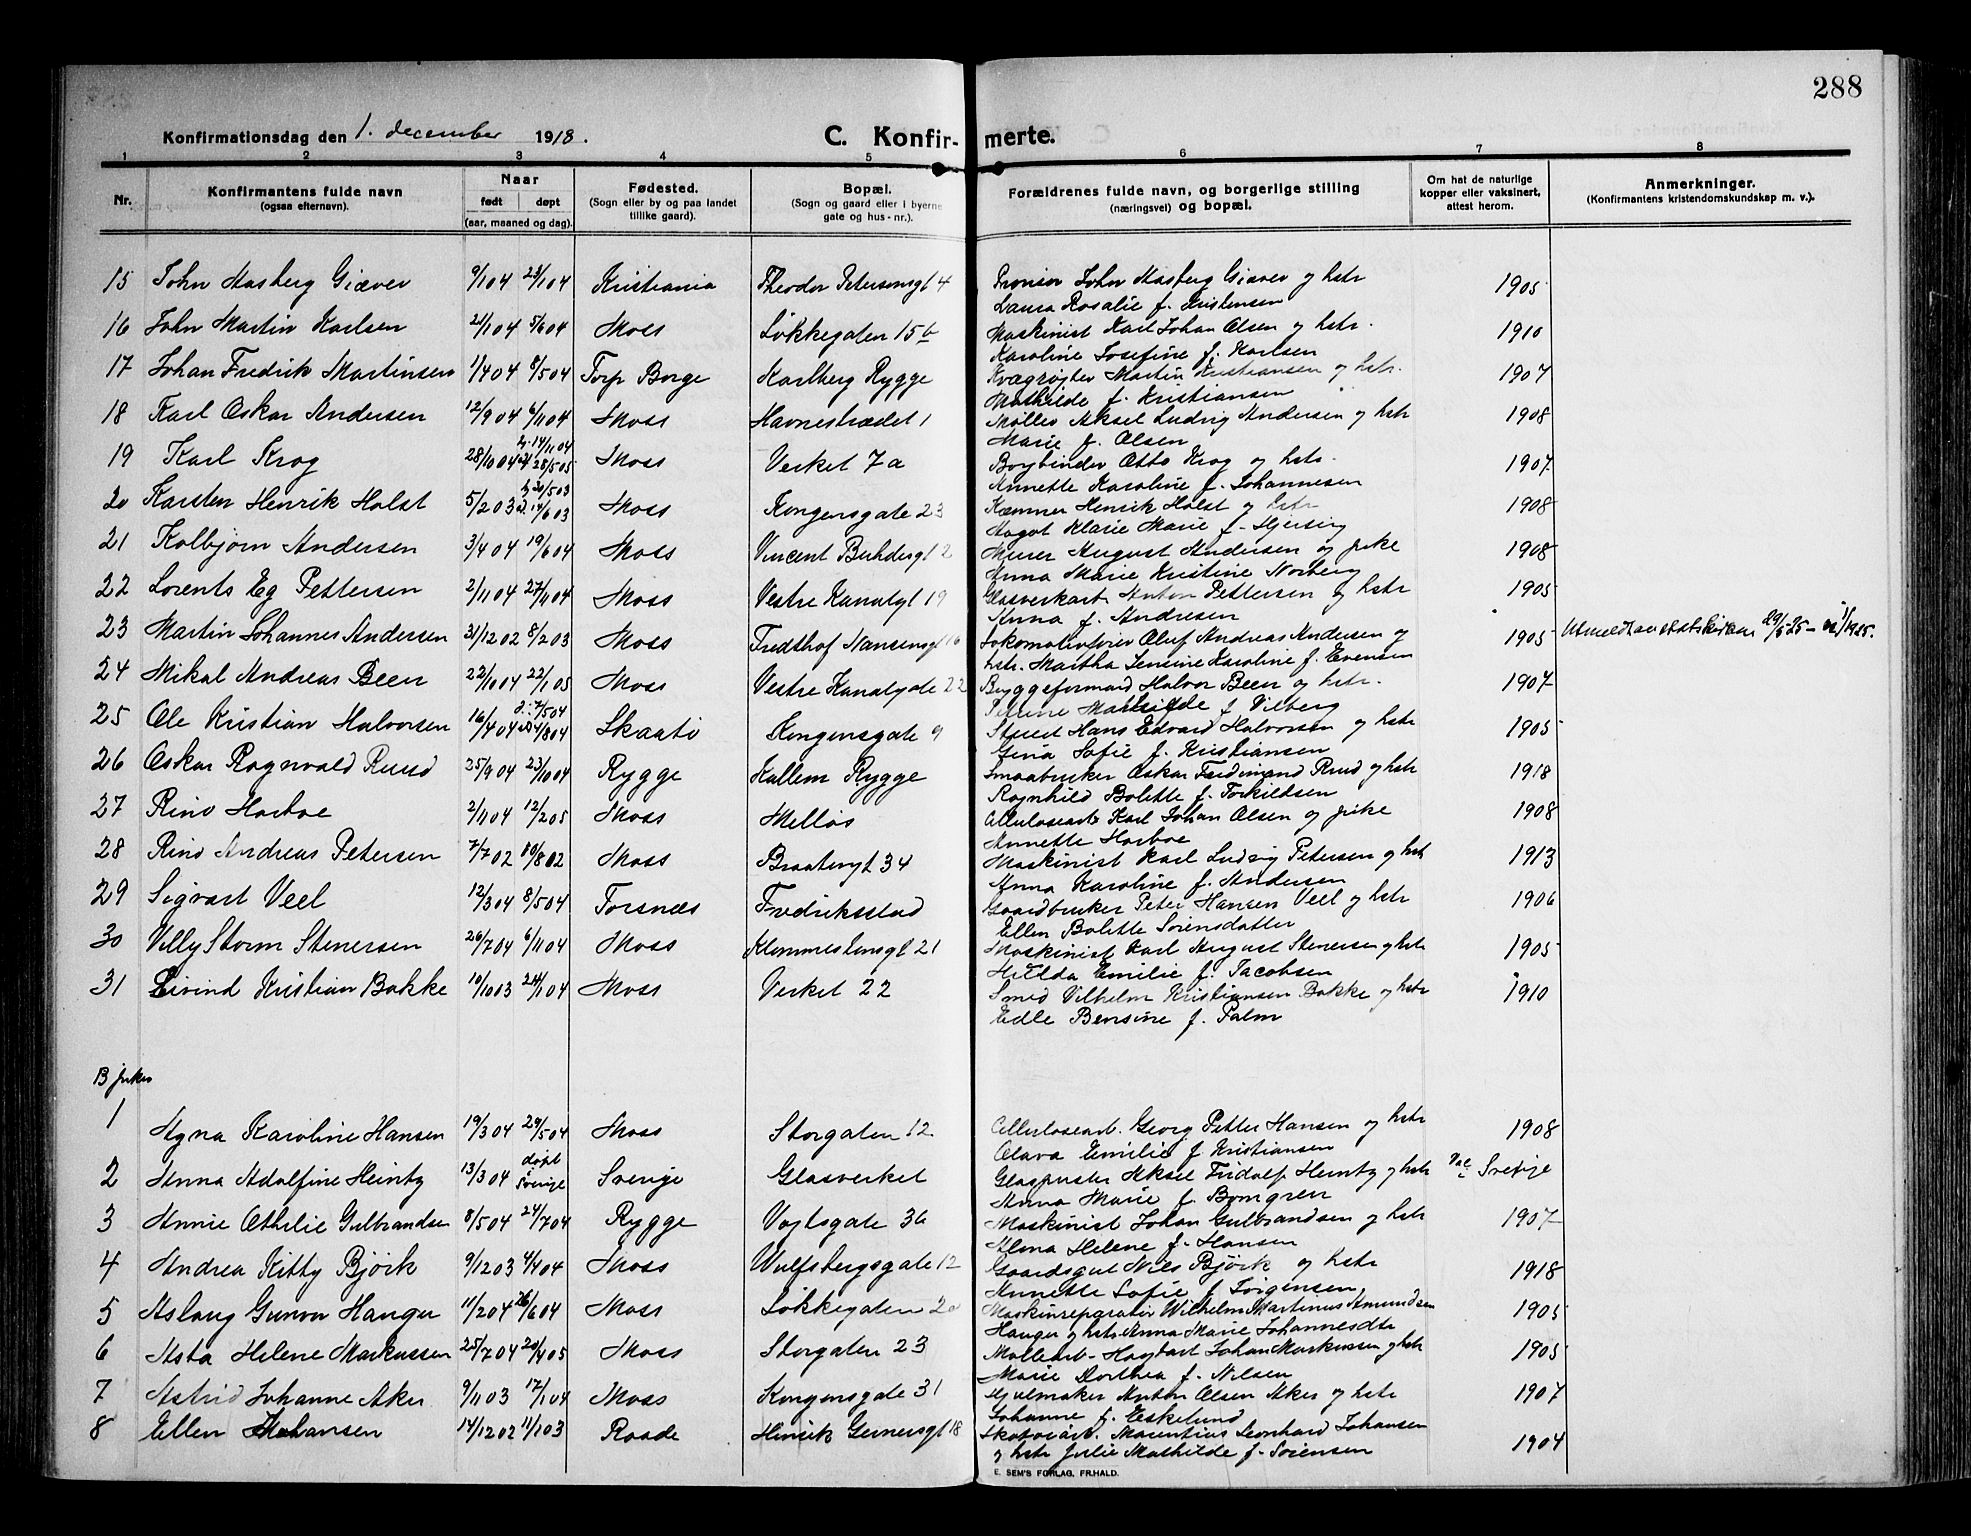 288
Konfirmationsdag den 1. december 1918.
C. Konfirmerte.
1 2 3 4 5 6 7 8
Nr.
Konfirmantens fulde navn
(ogsaa efternavn).
Naar
født døpt
(aar, maaned og dag).
Fødested.
(Sogn eller by og paa landet
tillike gaard).
Bopæl.
(Sogn og gaard eller i byerne
gate og hus-nr.).
Forældrenes fulde navn, og borgerlige stilling
(næringsvei) og bopæl.
Om hat de naturlige
kopper eller vaksinert,
attest herom.
Anmerkninger.
(Konfirmantens kristendomskundskap m. v.).
15 John Aasberg Giæver 9/1 04 23/1 04 Kristiania Theodor Petersensgt 4 Provisor John Aasberg Giæver og hstr 1905
Laura Rosalie f. Kristensen
16 John Martin Karlsen 21/1 04 5/6 04 Moss Løkkegaten 15b Maskinist Karl Johan Olsen og hstr. 1910
Karoline Josefine f. Karlsen
17 Johan Fredrik Martinsen 1/4 04 8/5 04 Torp Borge Karlberg Rygge Kvægrøgter Martin Kristiansen og hstr. 1907
Mathilde f. Kristiansen
18 Karl Oskar Andersen 12/9 04 6/11 04 Moss Havnestrædet 1 Møller Aksel Ludvig Andersen og hstr 1908
Marie f. Olsen
19 Karl Krog 28/10 04 14/11 04 28/5 05 Moss Verket 7a Bogbinder Otto Krog og hstr. 1907
Annette Karoline f. Johannesen
20 Karsten Henrik Holst 5/2 03 20/5 03 14/6 03 Moss Kongensgate 23 Kæmner Henrik Holst og hstr 1908
Magot Klarie Marie f.
21 Kolbjørn Andersen 3/4 04 19/6 04 Moss Vincent Buhdersgt 2 Murer August Andersen og pike 1908
Anna Marie Kristine Norberg
22 Lorents Eg Pettersen 2/11 04 27/11 04 Moss Vestre Kanalgt 19 Glasverkarb. Anton Pettersen og hstr 1905
Anna f. Andresen
23 Martin Johannes Andersen 31/12 02 8/2 03 Moss Fridthof Nansensgt 16 Lokomotivfører Oluf Andreas Andersen og 1905 Utmeldt av statskirken 29/5 25 - 1925.
hstr. Martha Jensine Karoline f. Evensen
24 Mikal Andreas Been 22/10 04 22/1 05 Moss Vestre Kanalgate 22 Bryggeformand Halvor Been og hstr. 1907
Petrine Mathilde f. Vilberg
25 Ole Kristian Halvorsen 16/4 04 7/5 04 4/8 04 Skaatø Kongensgate 9 Stuert Hans Edvard Halvorsen og hstr 1905
Gina Sofie f. Kristiansen
26 Oskar Ragnvald Ruud 25/9 04 23/10 04 Rygge Kallem Rygge Smaabruker Oskar Ferdinand Ruud og hstr 1918
Ragnhild Bolette f. Torkildsen
27 Rino Harboe 2/11 04 12/2 05 Moss Melløs Cellulosearb Karl Johan Olsen og pike 1908
Annette Harboe
28 Rino Andreas Petersen 7/7 02 10/8 02 Moss Braatengt 34 Maskinist Karl Ludvig Petersen og hstr 1913
Anna Karoline f. Andersen
29 Sigvart Veel 12/3 04 8/5 04 Torsnæs Fredriksstad Gaardbruker Peter Hansen Veel og hstr 1906
Ellen Bolette Sørensdatter
30 Villy Storm Stenersen 26/7 04 6/11 04 Moss Klommestensgt 21 Maskinist Karl August Stenersen og hstr 1905
Hilda Emilie f. Jacobsen
31 Eivind Kristian Bakke 10/10 03 24/1 04 Moss Verket 22 Smed Vilhelm Kristiansen Bakke og hstr 1910
Edle Bensine f. Palm
B piker
1 Agna Karoline Hansen 19/3 04 29/5 04 Moss Storgaten 12 Cellulosearb. Georg Petter Hansen og hstr 1908
Olava Emilie f. Kristiansen
2 Anna Adolfine Heintz 13/3 04 døpt Sverige Sverige Glasverket Glaspuster Aksel Fridolf Heintz og hstr Vac i Sverige
Anna Marie f. Bomgren
3 Annie Othilie Gulbrandsen 8/5 04 24/7 04 Rygge Vogtsgate 36 Maskinist Johan Gulbrandsen og hstr 1907
Alma Helene f. Hansen
4 Andrea Kitty Bjørk 9/12 03 4/4 04 Moss Wulfsbergsgate 12 Gaardsgut Nils Bjørk og hstr 1918
Annette Sofie f. Jørgensen
5 Aslaug Gunvor Hauger 11/2 04 26/6 04 Moss Løkkegaten 20 Maskinreparatør Wilhelm Martinus Amundsen 1905
Hauger og hstr. Anna Marie Johannesdtr
6 Asta Helene Markussen 25/7 04 20/4 05 Moss Storgaten 23 Møllearb. Hagbart Johan Markussen og hstr 1905
Marie Dorthea f. Nilsen
7 Astrid Johanne Aker 9/11 03 17/1 04 Moss Kongensgate 31 Hjulmaker Anton Olsen Aker og hstr 1907
Johanne f. Eskelund
8 Ellen Johansen 14/12 02 11/1 03 Raade Henrik Gernersgt 18 Skotøiarb. Marentius Leonhard Johansen 1904
og hstr Julie Mathilde f. Sørensen
E. SEM'S FORLAG, FR.HALD.